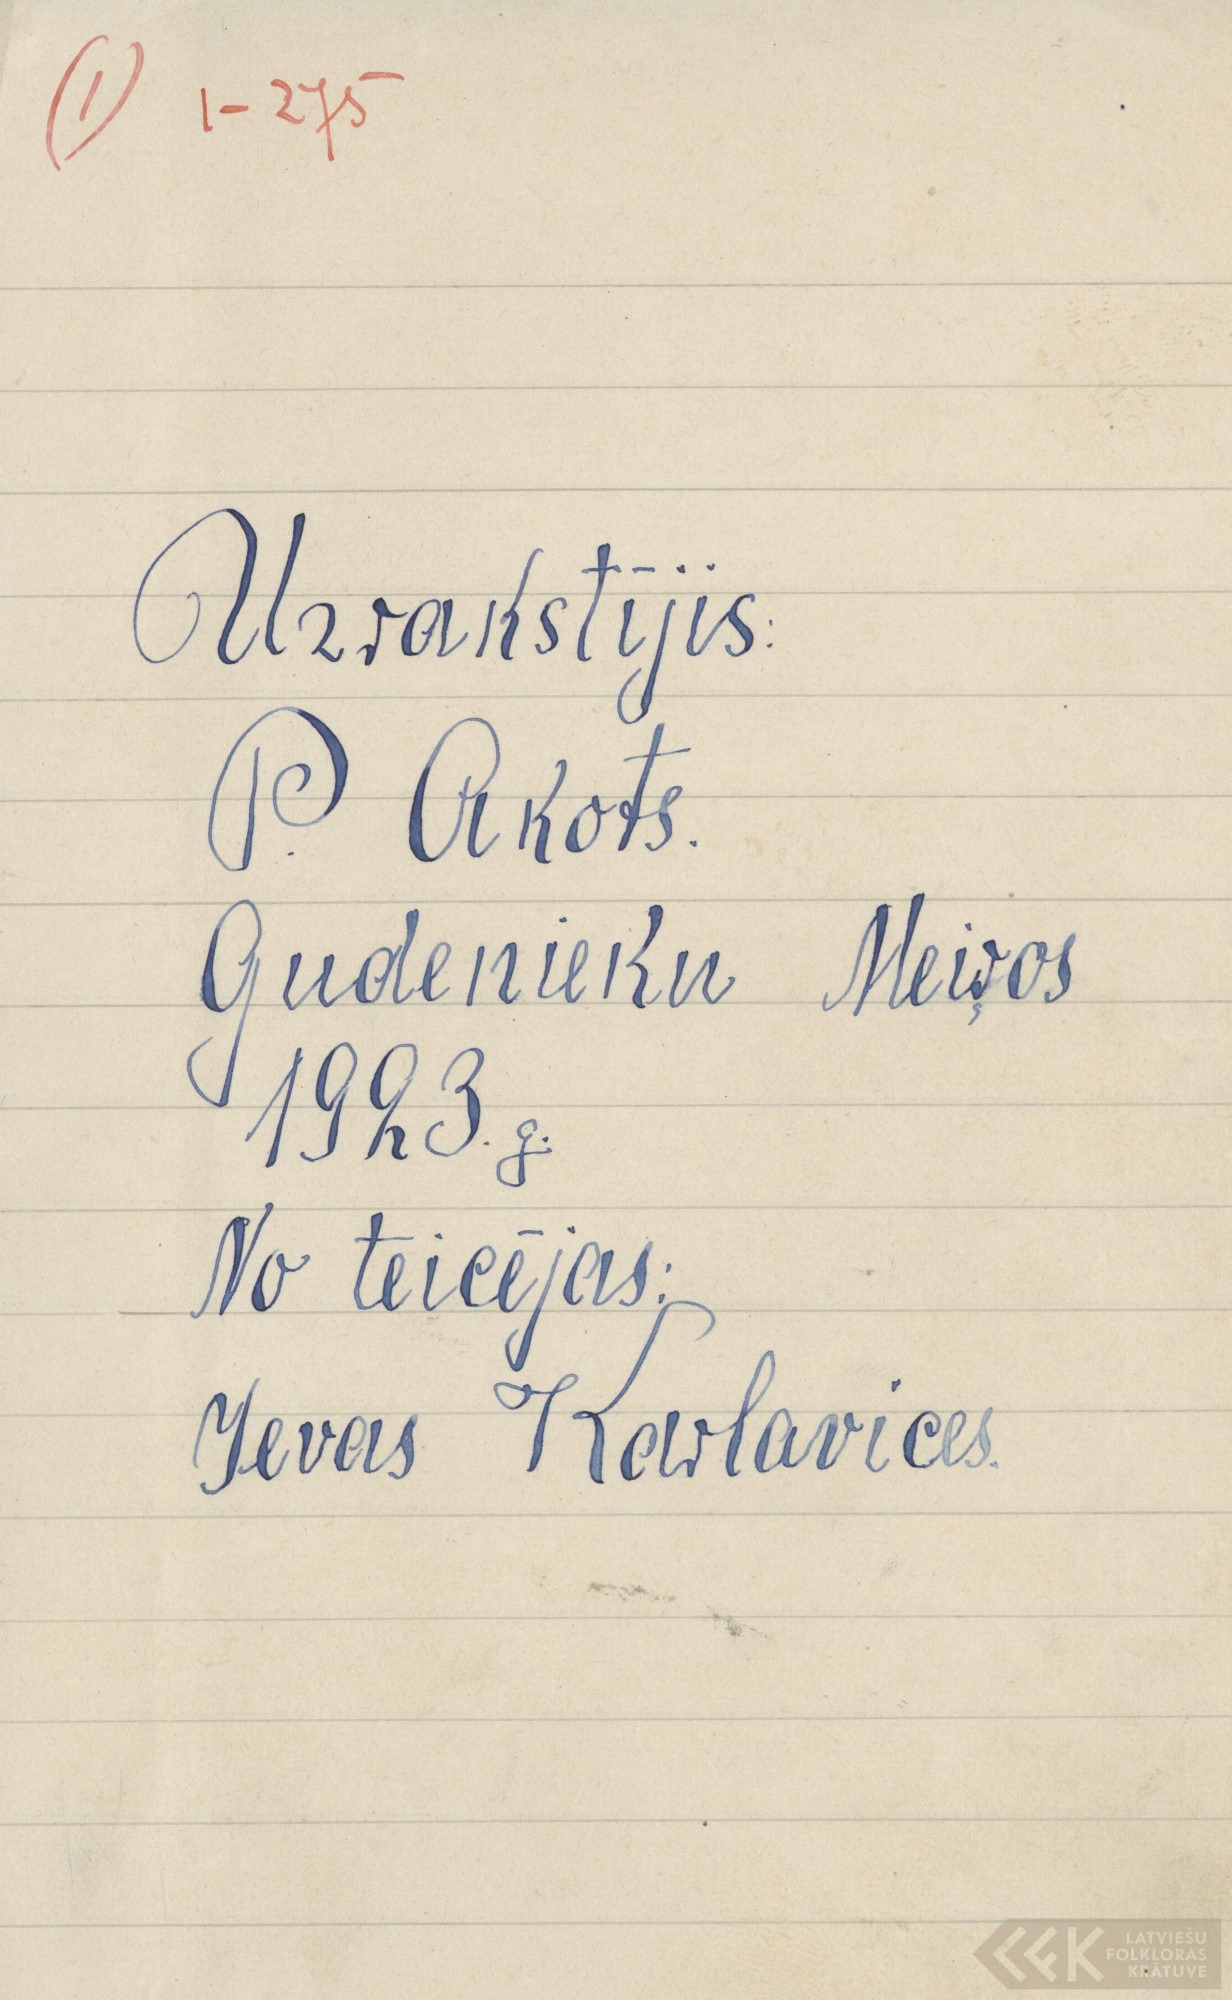 (1) 1-275
Uzrakstījis:
P. Akots.
Gudenieku Meiŗos
1923. g.
No teicējas:
Jevas Karlavices.
LATVIEŠU
FOLKLORAS
KRĀTUVE